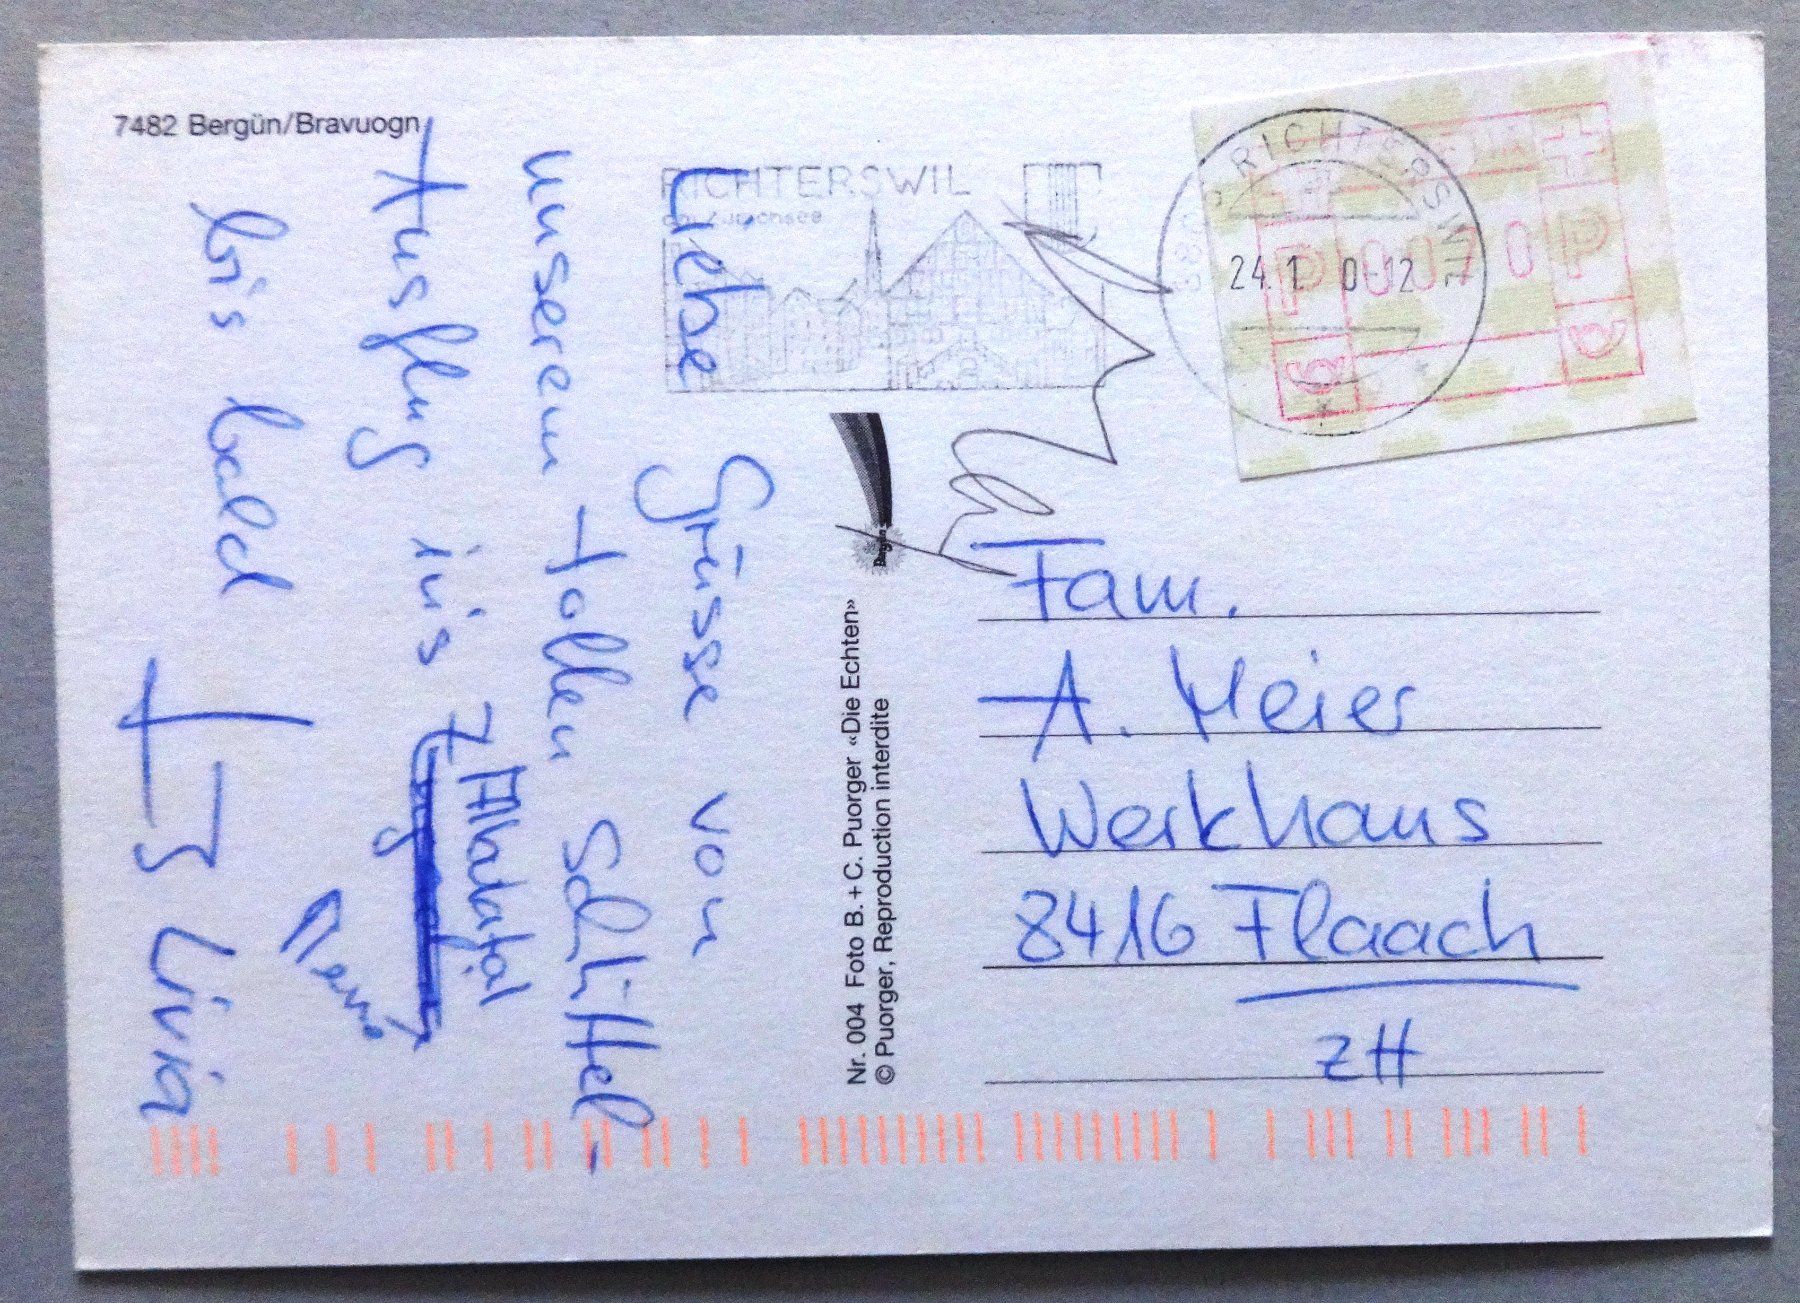 7482 Bergün/Bravuogn
Liebe Grüsse von
unserem tollen Schlittel-
Ausflug ins
Albulatal
bis bald
Livia
RICHTERSWIL
am Zürichsee
8805 RICHTERSWIL
24.1
-12
PP
0070
PP
Nr. 004 Foto B. + C. Puorger «Die Echten»
© Puorger, Reproduction interdite
Fam.
A. Meier
Werkhaus
8416 Flaach
ZH